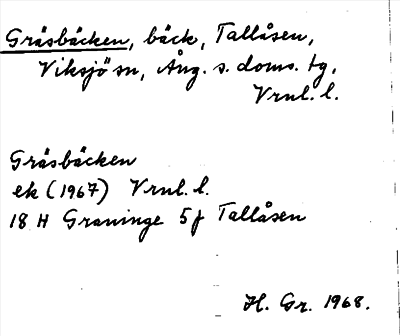 Gräsbäcken, bäck, Tallåsen,
Viksjö sn, Ång. s. doms. tg,
Vrnl. l.
Gräsbäcken
ek (1967) Vrnl. l.
18 H Graninge 5 f Tallåsen
H. Gr. 1968.